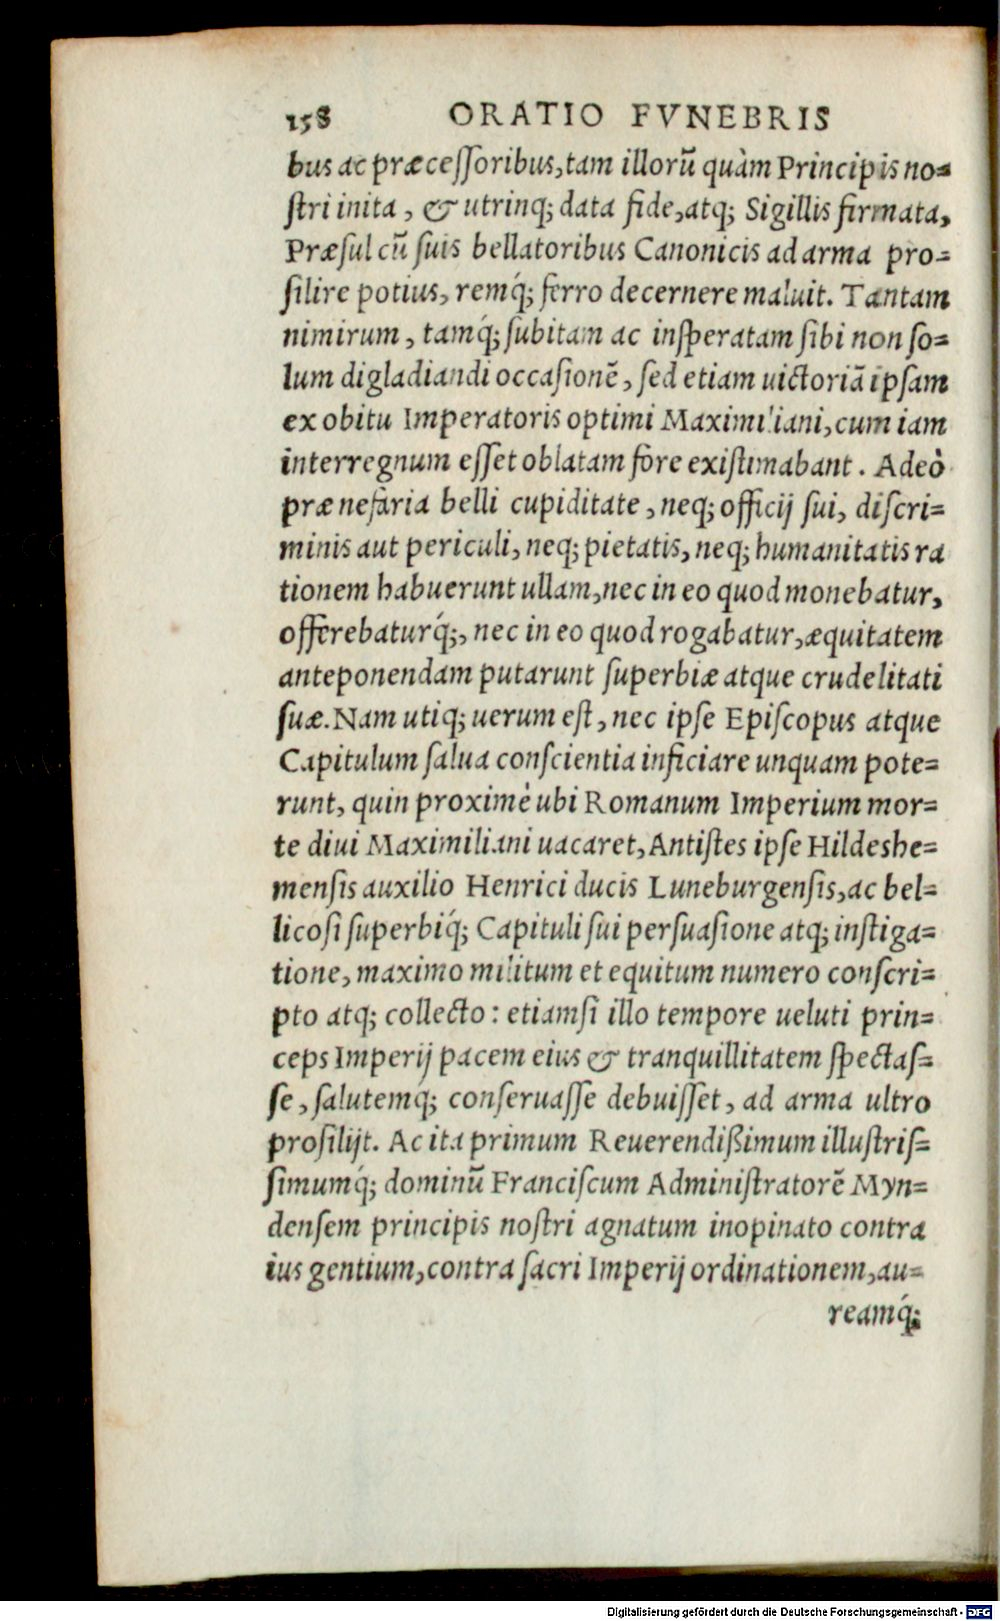 158 ORATIO FVNEBRIS
bus ac præcessoribus, tam illorũ quàm Principis no=
stri inita, & utrinq; data fide, atq; Sigillis firmata,
Præsul cũ suis bellatoribus Canonicis ad arma pro=
silire potius, remq́; ferro decernere maluit. Tantam
nimirum, tamq́; subitam ac insperatam sibi non so=
lum digladiandi occasionẽ, sed etiam uictoriã ipsam
ex obitu Imperatoris optimi Maximiliani, cum iam
interregnum esset oblatam fore existimabant. Adeò
præ nefaria belli cupiditate, neq; officij sui, discri=
minis aut periculi, neq; pietatis, neq; humanitatis ra
tionem habuerunt ullam, nec in eo quod monebatur,
offerebaturq́;, nec in eo quod rogabatur, æquitatem
anteponendam putarunt superbiæ atque crudelitati
suæ. Nam utiq; uerum est, nec ipse Episcopus atque
Capitulum salua conscientia inficiare unquam pote=
runt, quin proximè ubi Romanum Imperium mor=
te diui Maximiliani uacaret, Antistes ipse Hildeshe=
mensis auxilio Henrici ducis Luneburgensis, ac bel=
licosi superbiq́; Capituli sui persuasione atq; instiga=
tione, maximo militum et equitum numero conscri=
pto atq; collecto: etiamsi illo tempore ueluti prin=
ceps Imperij pacem eius & tranquillitatem spectas=
se, salutemq́; conseruasse debuisset, ad arma ultro
prosilijt. Ac ita primum Reuerendißimum illustris=
simumq́; dominũ Franciscum Administratorẽ Myn=
densem principis nostri agnatum inopinato contra
ius gentium, contra sacri Imperij ordinationem, au=
reamq́;
Digitalisierung gefördert durch die Deutsche Forschungsgemeinschaft - DFG